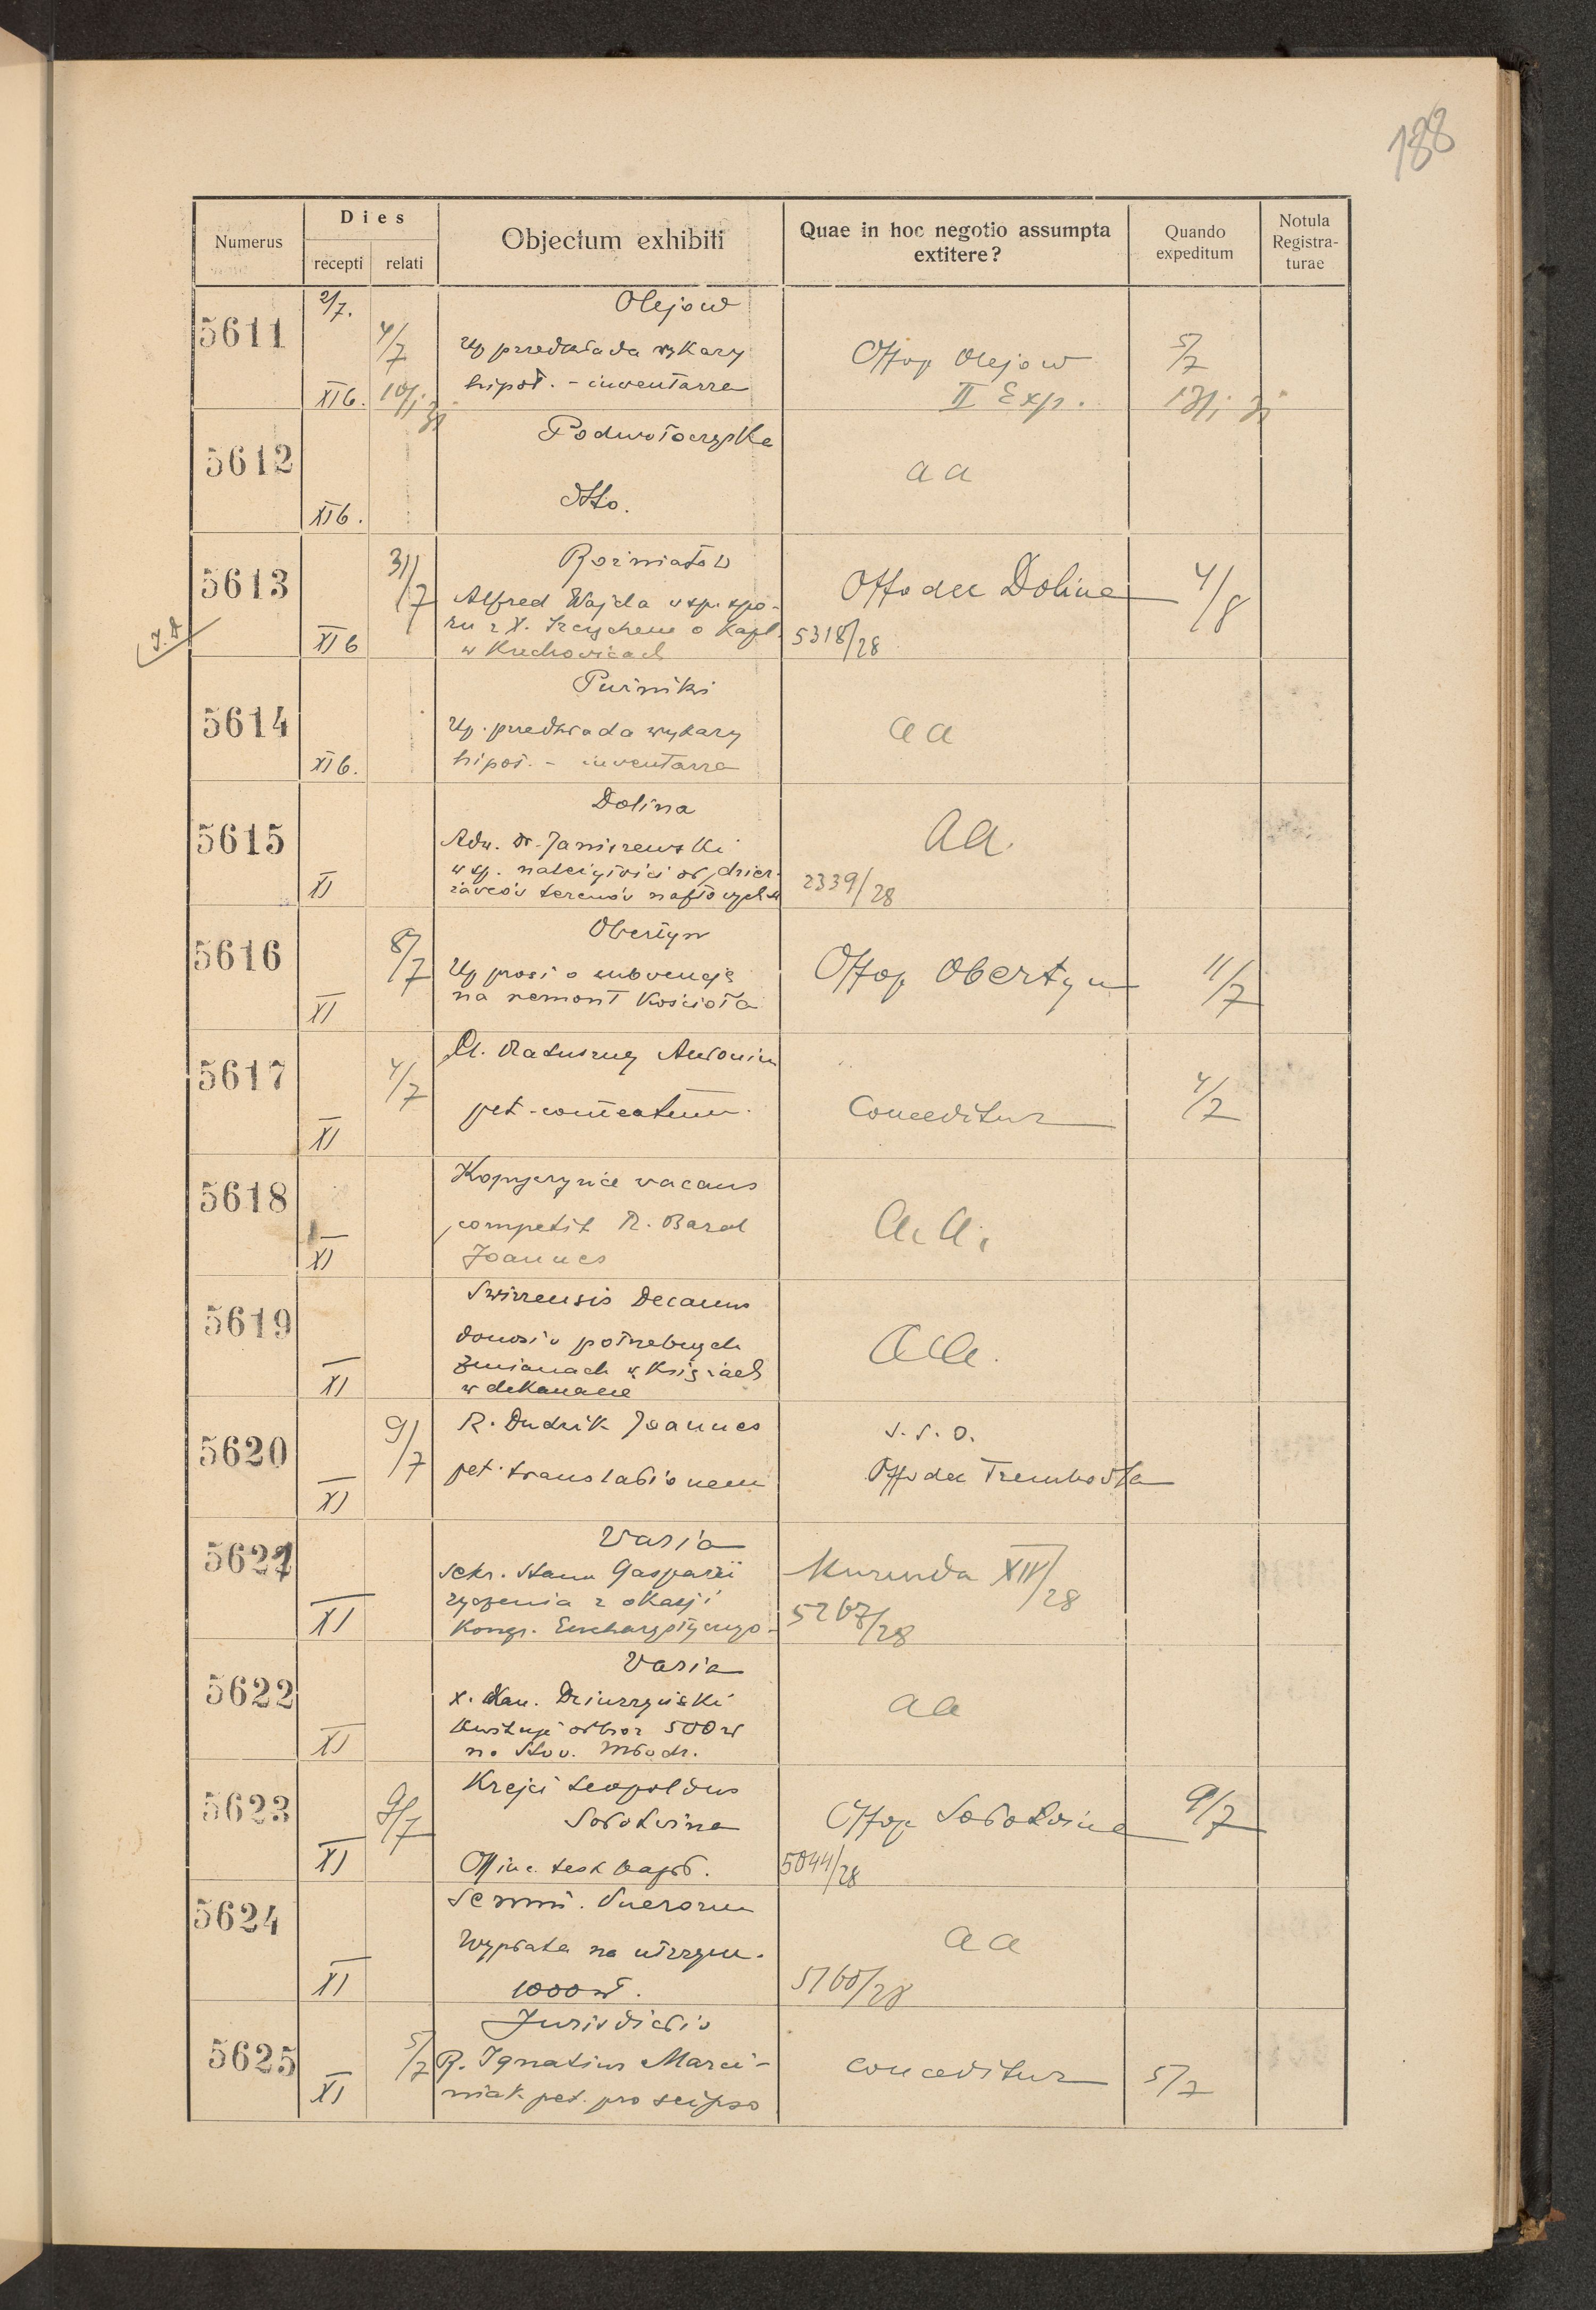 188
Numerus
Dies
recepti relati
Objectum exhibiti
Quae in hoc negotio assumpta
extitere?
Quando
expeditum
Notula
Registra-
turae
5611
2/7.
4/7
XI6.
Olejow
Up przedkłada wykazy
hipot. - inwentarza
Offop Olejow
II Exp.
5/7
5612
XI6.
Podwołoczyska
dtto.
aa
5613
31/7
XI6
Rożniatów
Alfred Wajda w sp. spo-
ru z X. o Kapl.
w Krechowicach
Offo dec Dolina
5318/28
4/8
5614
XI6.
Puźniki
Up. przedkłada wykazy
hipot. - inwentarza
aa
5615
XI
Dolina
Adw. Dr. Janiszewski
w sp. należytości od dzier-
żawców terenów naftowych
aa.
2339/28
5616
8/7
XI
Obertyn
Up prosi o subwencję
na remont Kościoła
Offop Obertyn
11/7
5617
4/7
XI
Antonius
pet. comeatum.
Conceditur
4/7
5618
XI
Kopyczynce vacans
competit R. Baral
Joannes
a.a.
5619
XI
Swirzensis Decanus
donosi o potrzebnych
zmianach w Księżach
w dekanacie
aa.
5620
9/7
XI
R. Dudzik Joannes
pet. translationem
S.S.O.
Offo dec Trembowla
5621
XI
Varia
sekr. stanu Gasparri
życzenia z okazji
Kongr. Eucharystycznego.
Kurenda XIV/28
5267/28
5622
XI
Varia
X. Kan. Dziurzyński
Kwituje odbiór 500 zł
na Stow. Młodz.
aa
5623
9/7
XI
Krejci Leopoldus
Sołotwina
Offic. test bapt.
Offop Sołotwina
5044/28
9/7
5624
XI
Semin. Puerorum
Wypłata na utrzym.
1000 zł.
aa
5160/28
5625
5/7
XI
Jurisdictio
R. Ignatius Marci-
niak pet. pro seipso
conceditur
5/7